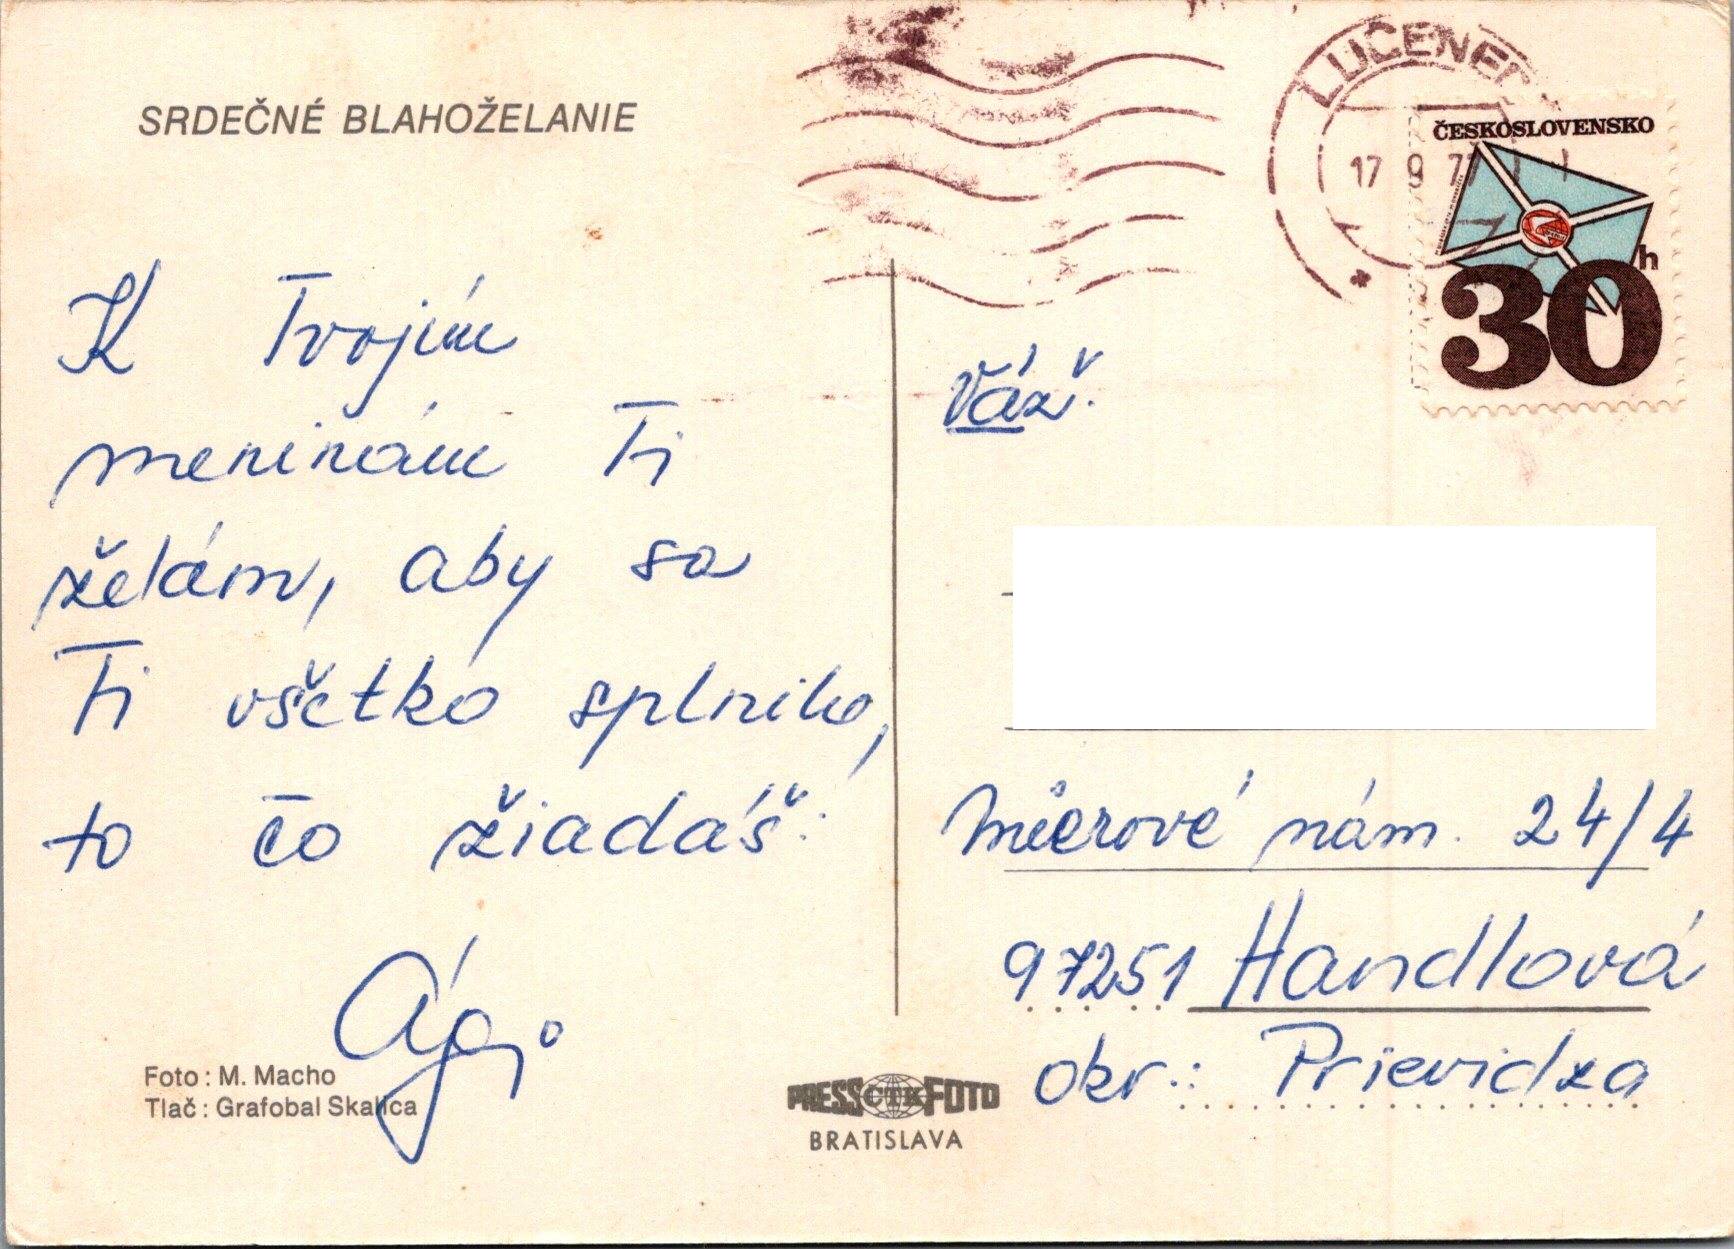 SRDEČNÉ BLAHOŽELANIE
K Tvojím
meninám Ti
želám, aby sa
Ti všetko splnilo,
to čo žiadáš.
Ági
Foto : M. Macho
Tlač : Grafobal Skalica
PRESS ČTK FOTO
BRATISLAVA
LUČENEC
17 9 77
ČESKOSLOVENSKO
30 h
Váž.
Mierové nám. 24/4
97251 Handlová
okr.: Prievidza